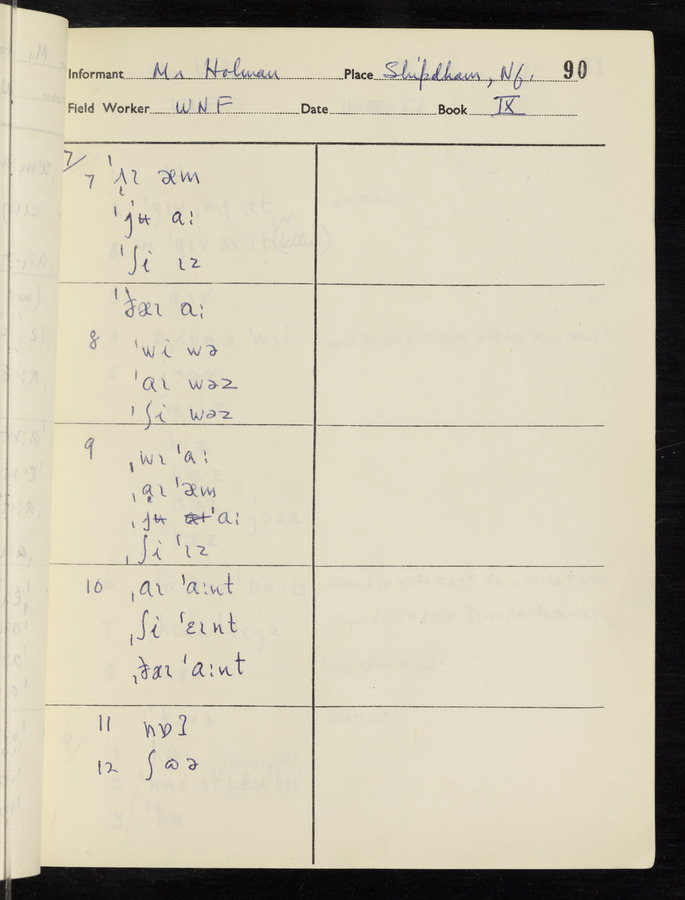 Informant Mr Holman Place Shipdham, Nf. 90
Field Worker WNF Date Book IX
7/
7 ˈʌɪ æm
ˈjʉ aː
ˈʃi ɪz
ˈðæɪ aː
8 ˈwi wə
ˈaɪ wəz
ˈʃi wəz
9 ˌwɪ ˈaː
ˌaɪ ˈæm
ˌjʉ ˈaː
ˌʃi ˈɪz
10 ˌaɪ ˈaːnt
ˌʃi ˈɛɪnt
ˌðæɪ ˈaːnt
11
12